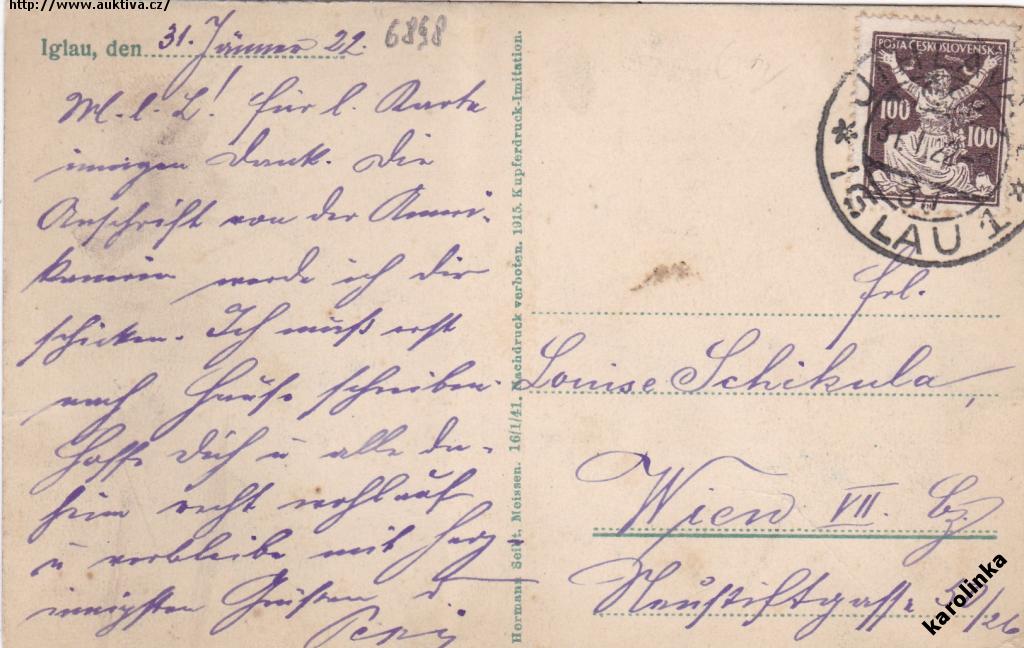 http://www.auktiva.cz/
Iglau, den 31. Jänner 22.
6898
M. l. L! Für l. Karte
innigen Dank. Die
Anschrift von der Ameri-
kanerin werde ich dir
schicken. Ich muß erst
nach Hause schreiben.
Hoffe Dich u alle da-
heim recht wohlauf
u verbleibe mit herz-
innigsten Grüßen d.
Pepi
Hermann Seibt, Meissen. 16/1/41. Nachdruck verboten. 1915. Kupferdruck-Imitation.
POŠTA ČESKOSLOVENSKÁ
100 100
IGLAU 1
31. I. 22
Frl.
Louise Schikula,
Wien VII. Bz
Neustiftgasse /26
karolinka